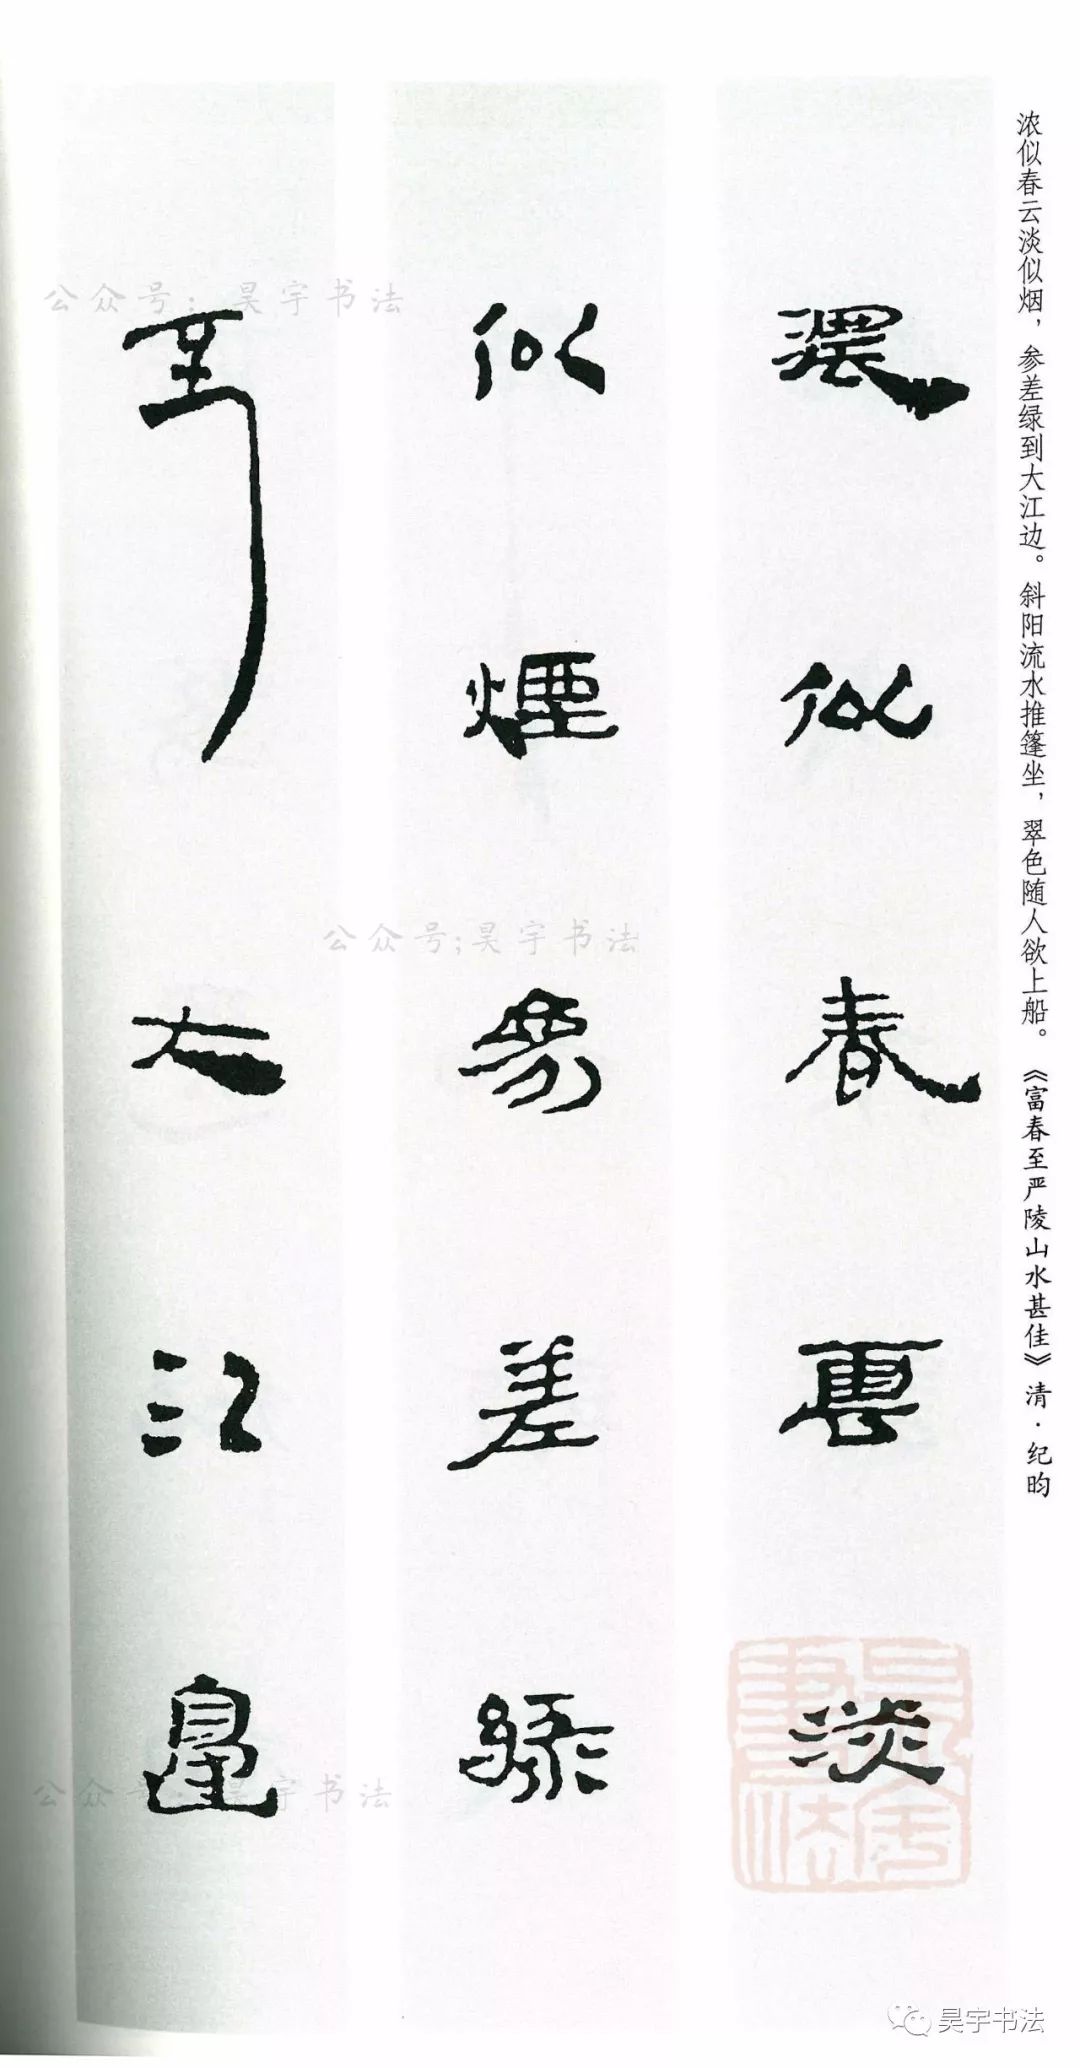 浓似春云淡似烟，参差绿到大江边。斜阳流水推篷坐，翠色随人欲上船。《富春至严陵山水甚佳》清·纪昀
濃似春雲淡
似煙參差綠
到大江邊
公众号：昊宇书法
公众号；昊宇书法
公众号：昊宇书法
昊宇書法
昊宇书法